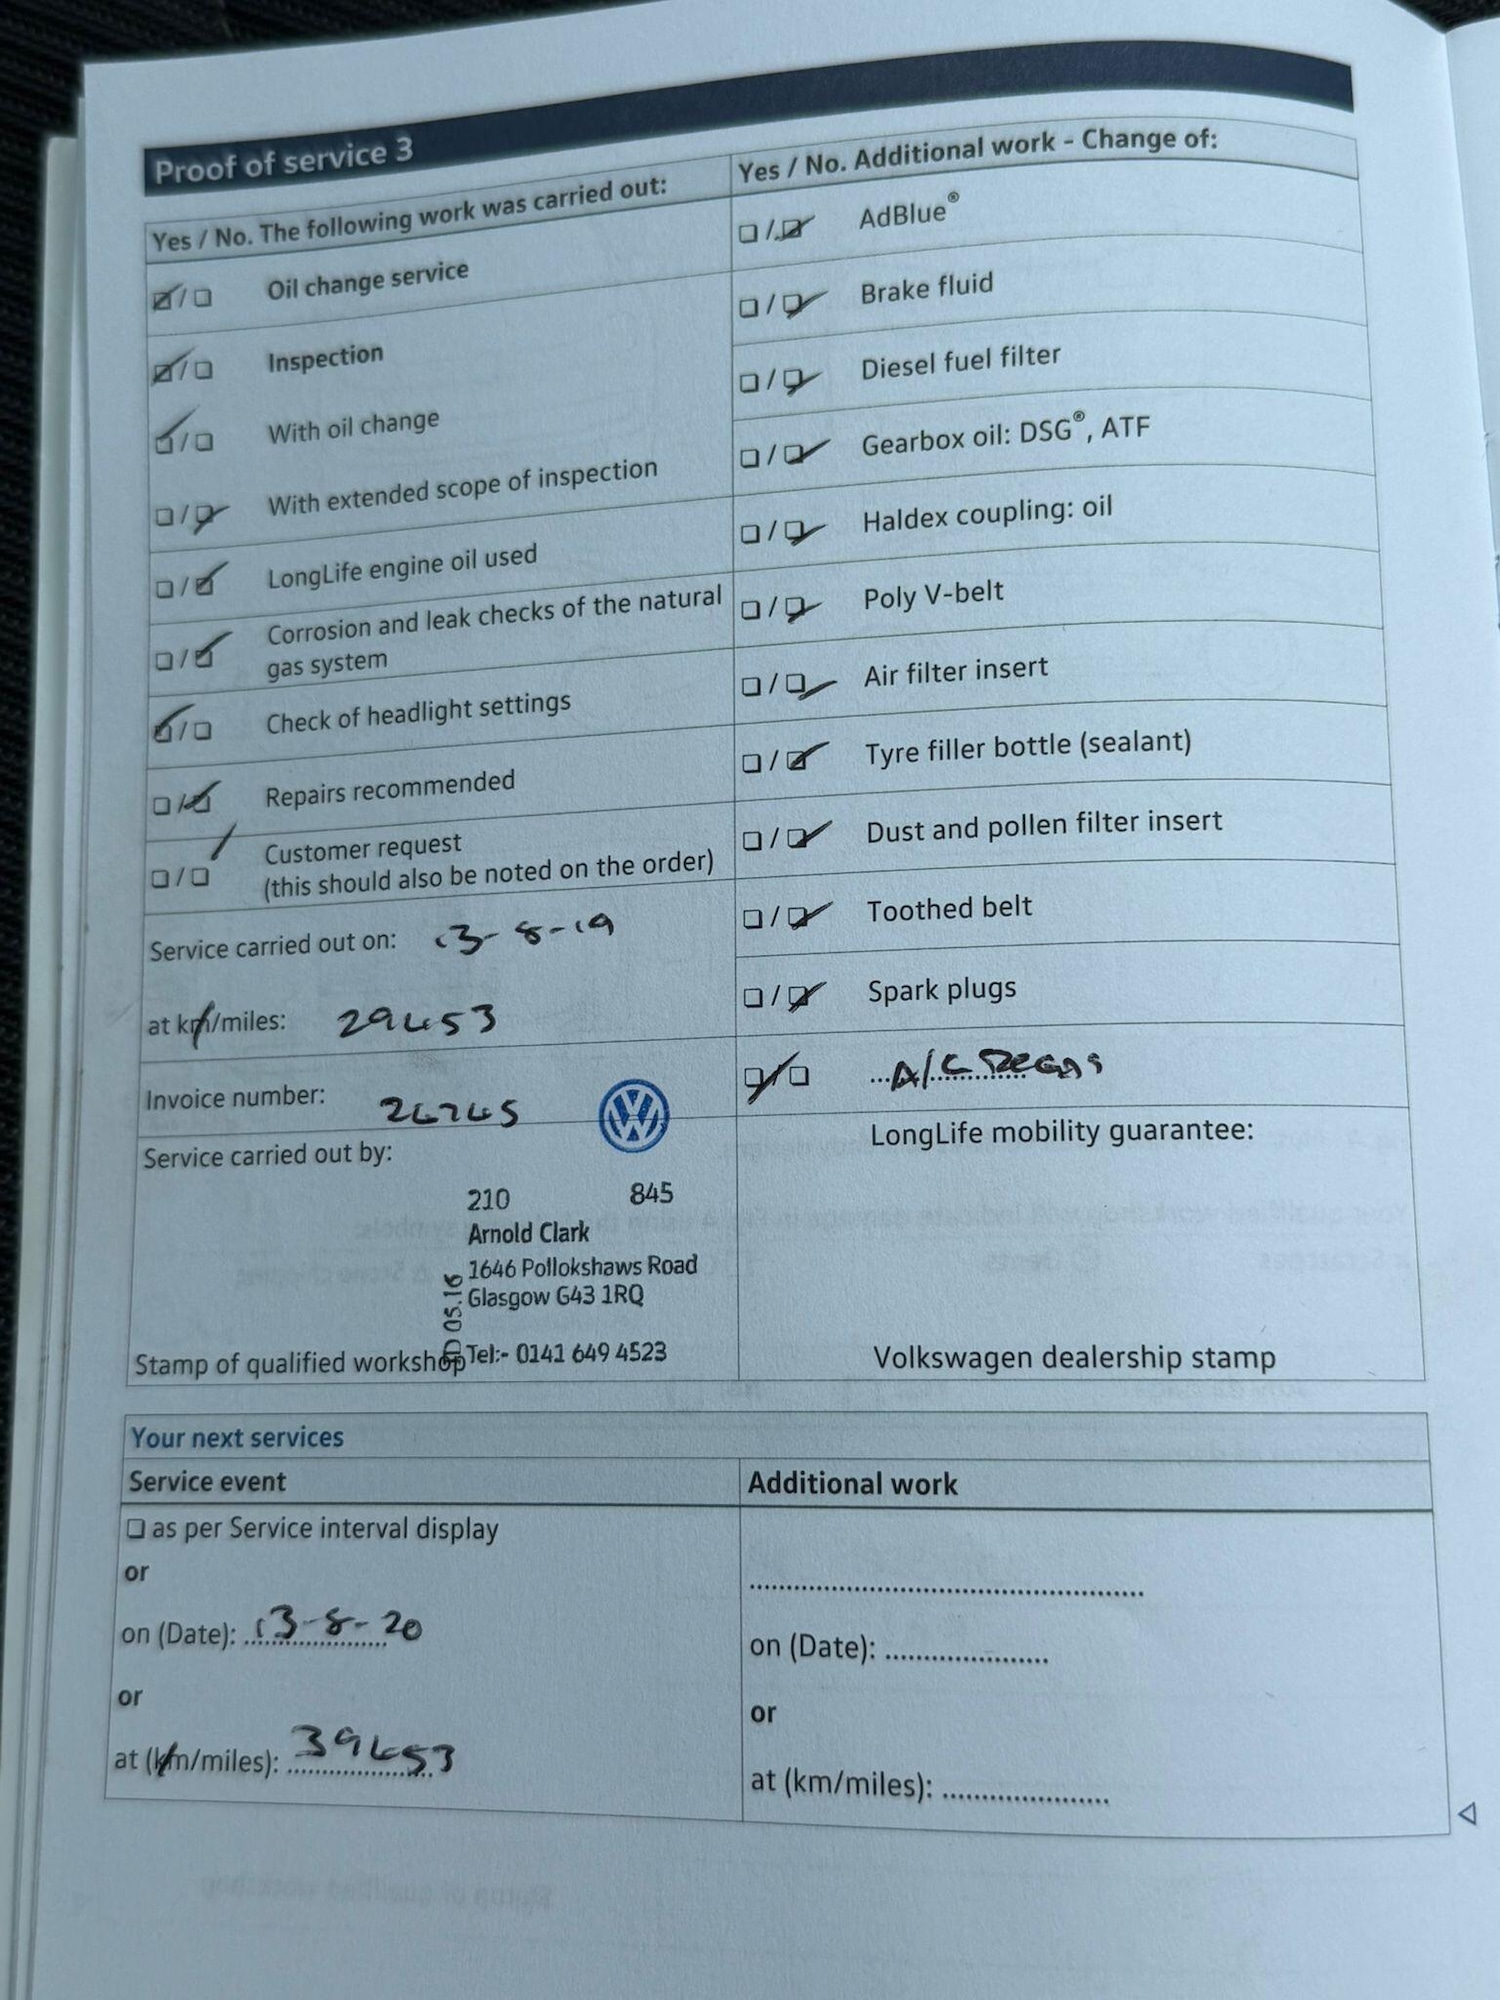 Proof of service 3
Yes / No. The following work was carried out:
Oil change service
Inspection
With oil change
With extended scope of inspection
LongLife engine oil used
Corrosion and leak checks of the natural
gas system
Check of headlight settings
Repairs recommended
Customer request
(this should also be noted on the order)
Service carried out on: 13-8-19
at km/miles: 29453
Invoice number:
Service carried out by:
210 845
Arnold Clark
1646 Pollokshaws Road
Glasgow G43 1RQ
Tel:- 0141 649 4523
05.16
Stamp of qualified workshop
Yes / No. Additional work - Change of:
AdBlue®
Brake fluid
Diesel fuel filter
Gearbox oil: DSG®, ATF
Haldex coupling: oil
Poly V-belt
Air filter insert
Tyre filler bottle (sealant)
Dust and pollen filter insert
Toothed belt
Spark plugs
A/C
LongLife mobility guarantee:
Volkswagen dealership stamp
Your next services
Service event
as per Service interval display
or
on (Date): 13-8-20
or
at (km/miles): 39453
Additional work
on (Date):
or
at (km/miles):